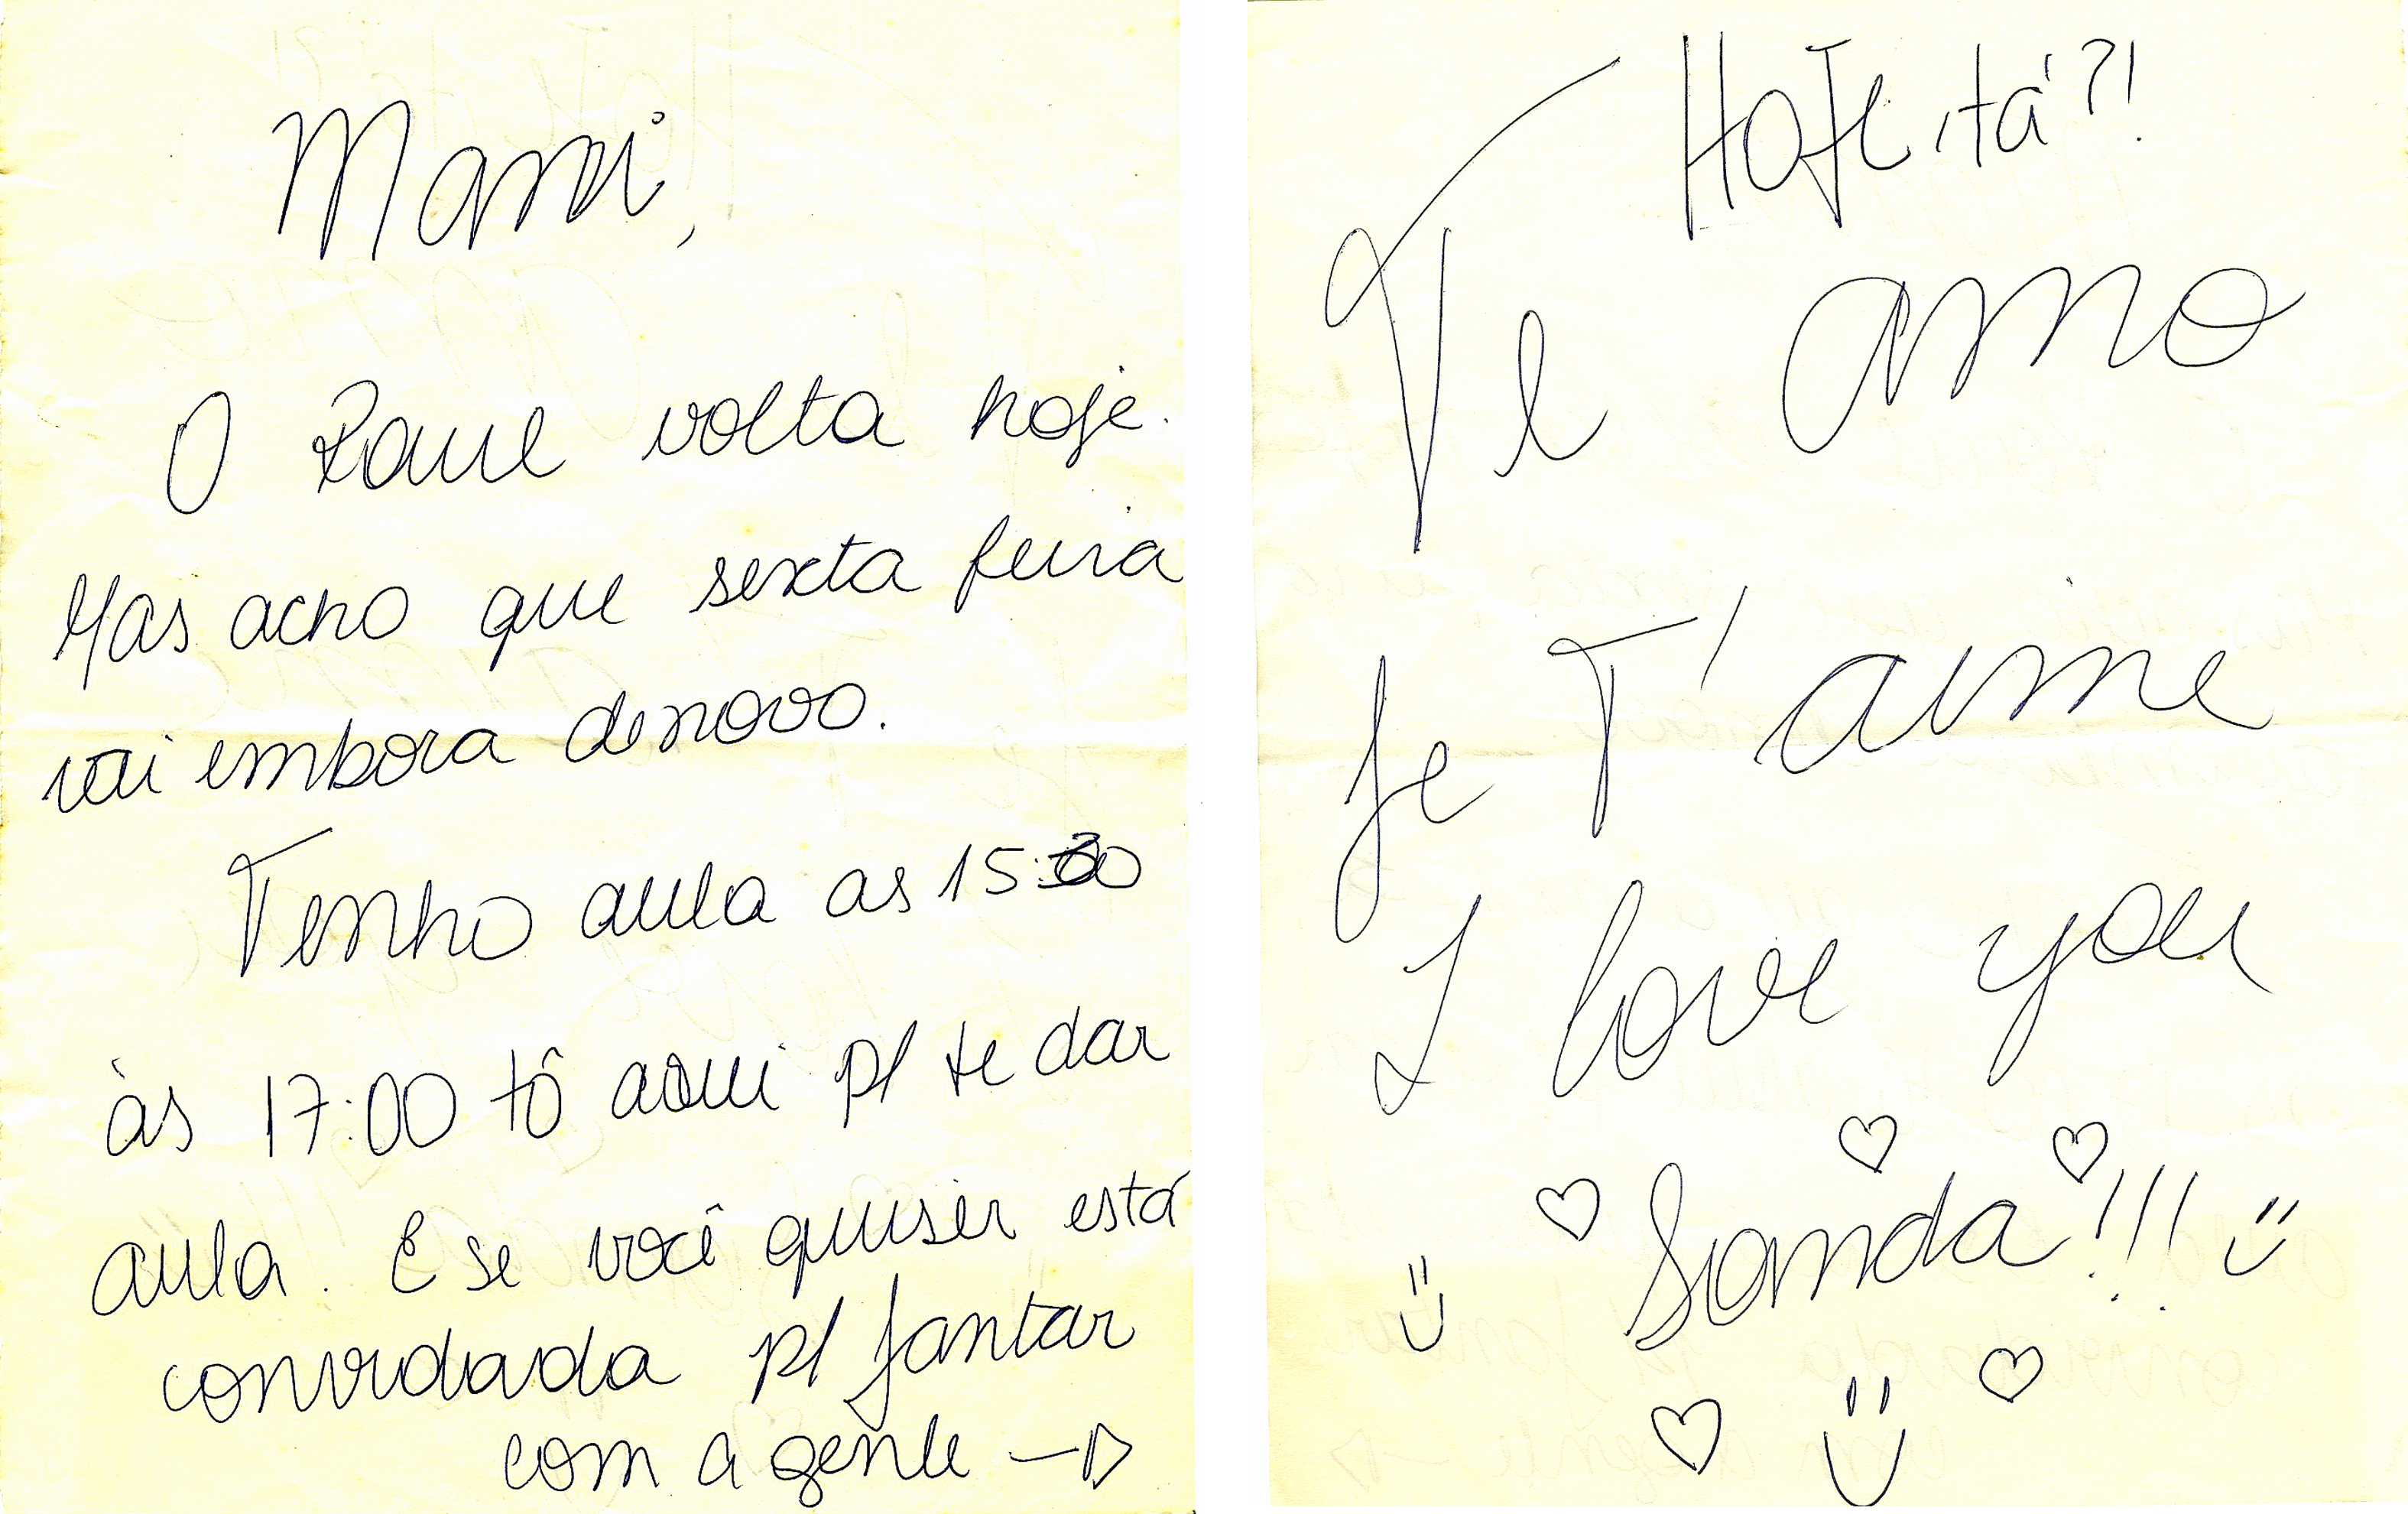 Mami,
O Raul volta hoje.
Mas acho que sexta feira
vai embora denovo.
Tenho aula as 15:30
às 17:00 tô aqui p/ te dar
aula. E se você quiser está
convidada p/ jantar
com a gente
HOJE, tá?!
Te amo
Je T'aime
I love you
Sanda!!!